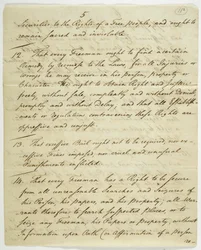 5
securities to the Rights of a free people, and ought to
remain sacred and inviolable.
12. That every Freeman ought to find a certain
Remedy, by recourse to the Laws, for all Injuries or
wrongs he may receive in his person, property or
Character. He ought to obtain Right and Justice
freely without sale, completely and without Denial,
promptly and without delay, and that all Establish-
ments or regulations contravening these Rights are
oppressive and unjust.
13. That excessive Bail ought not to be required, nor ex-
cessive Fines imposed, nor cruel and unusual
Punishments inflicted.
14. That every Freeman has a Right to be secure
from all unreasonable Searches and Seizures of
his Person, his Papers, and his Property; all War-
rants therefore to search suspected places, or
seize any Freeman, his Papers or Property, without
Information upon Oath (or Affirmation of a Person